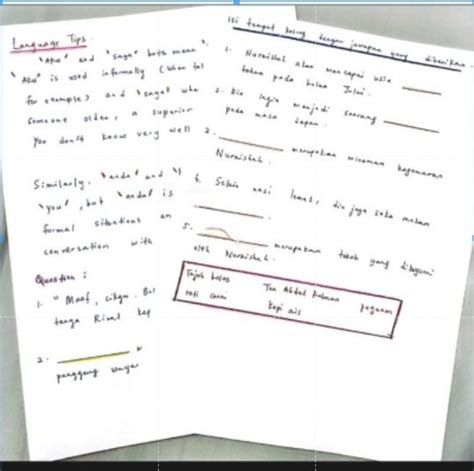 Language Tips.
"Aku" and "saya" both mean "
"Aku" is used informally (when tal
for example) and "saya" whe
someone older, a superior
you don't know very well
Similarly, "anda" and "
"you", but "anda" is
formal situations an
conversation with
Question :
1. "Maaf, cikgu. Bol
tenga Rizal kep
2.
panggung waya
Isi tempat kosong dengan jawapan yang diberikan.
1. Nuraishah akan mencapai usia
tahun pada bulan Julai.
2. Dia ingin menjadi seorang
pada masa depan.
3. merupakan minuman kegemaran
Nuraishah.
4. Selain nasi lemak, dia juga suka makan
5. merupakan tokoh yang dikagumi
oleh Nuraishah.
Tujuh belas Tun Abdul Rahman peguam
roti canai kopi ais